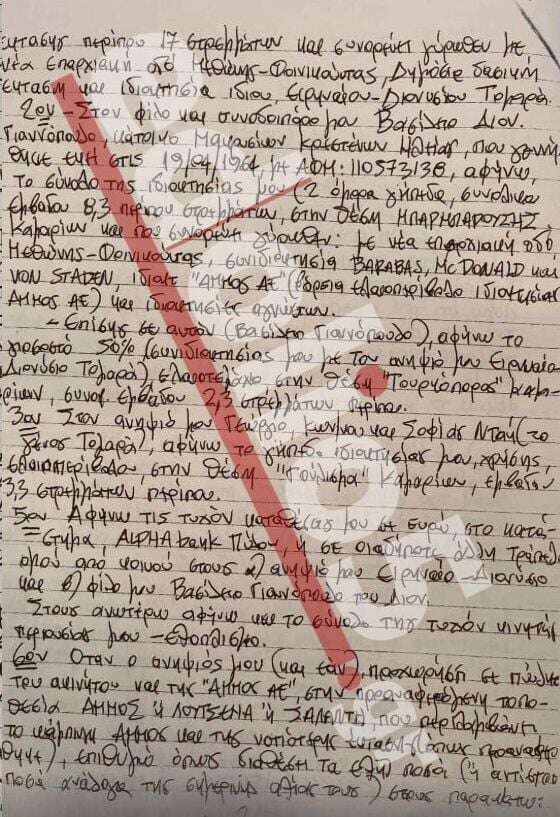 έκτασης περίπου 17 στρεμμάτων και συνορεύει γύρωθεν με
νέα επαρχιακή οδό Μεθώνης-Φοινικούντας, Δημόσια δασική
έκταση και ιδιοκτησία ιδίου, Ειρηναίου-Διονυσίου Τομαρά.
2ον - Στον φίλο και συνοδοιπόρο μου Βασίλειο Διον.
Γιαννόπουλο, κάτοικο Μακρισίων Κρεστένων Ηλείας, που γεννή
θηκε στις 19/04/1964, με ΑΦΜ: 110573138, αφήνω
το σύνολο της ιδιοκτησίας μου (2 όμορα γήπεδα, συνολικού
εμβαδού 8,3 περίπου στρεμμάτων, στην θέση ΜΠΑΡΜΠΑΡΟΥΣΗΣ,
Καμαρίων και που συνορεύει γύρωθεν: με νέα επαρχιακή οδό,
Μεθώνης-Φοινικούντας, συνιδιοκτησία BARABAS, McDONALD και
VON STADEN, ιδιοκτ. "ΑΜΜΟΣ ΑΕ" (βόρεια ελαιοπερίβολο ιδιοκτησίας
ΑΜΜΟΣ ΑΕ) και ιδιοκτησίες αγνώστων.
- Επίσης σε αυτόν (Βασίλειο Γιαννόπουλο), αφήνω το
ποσοστό 50% (συνιδιοκτησίας μου με τον ανηψιό μου Ειρηναίο
Διονύσιο Τομαρά), ελαιοτεμάχιο στην θέση "Τουρκόπορος" Καμα-
ρίων, συνολ. εμβαδού 2,3 στρεμμάτων περίπου.
3ον Στον ανηψιό μου Γεώργιο, Κων/νου και Σοφίας Ντάη (το
γένος Τομαρά), αφήνω το γήπεδο ιδιοκτησίας μου, χρήσης
ελαιοπερίβολου, στην θέση "Γούλισμα" Καμαρίων, εμβαδού
3,3 στρεμμάτων περίπου.
5ον Αφήνω τις τυχόν καταθέσεις μου σε Ευρώ, στο κατά-
στημα, ALPHA bank Πύλου, ή σε οιαδήποτε άλλη Τράπεζα
όμου από κοινού στους α) ανηψιό μου Ειρηναίο-Διονύσιο
και β) φίλο μου Βασίλειο Γιαννόπουλο του Διον.
Στους ανωτέρω αφήνω και το σύνολο της τυχόν κινητής
περιουσίας μου - εξοπλισμό.
6ον Όταν ο ανηψιός μου (και εάν), προχωρήση σε πώληση
του ακινήτου και της "ΑΜΜΟΣ ΑΕ", στην προαναφερόμενη τοπο-
θεσία ΑΜΜΟΣ ή ΛΟΥΤΣΕΝΑ ή ΣΑΛΑΝΤΙ, που περιλαμβάνει
το κάμπινγκ ΑΜΜΟΣ και της νοτιότερης έκτασης (όπως προαναφέρ
θηκε), επιθυμώ όπως διαθέσει τα εξής ποσά (ή αντίστοι
ποσά ανάλογα της σημερινής αξίας τους) στους παρακάτω: